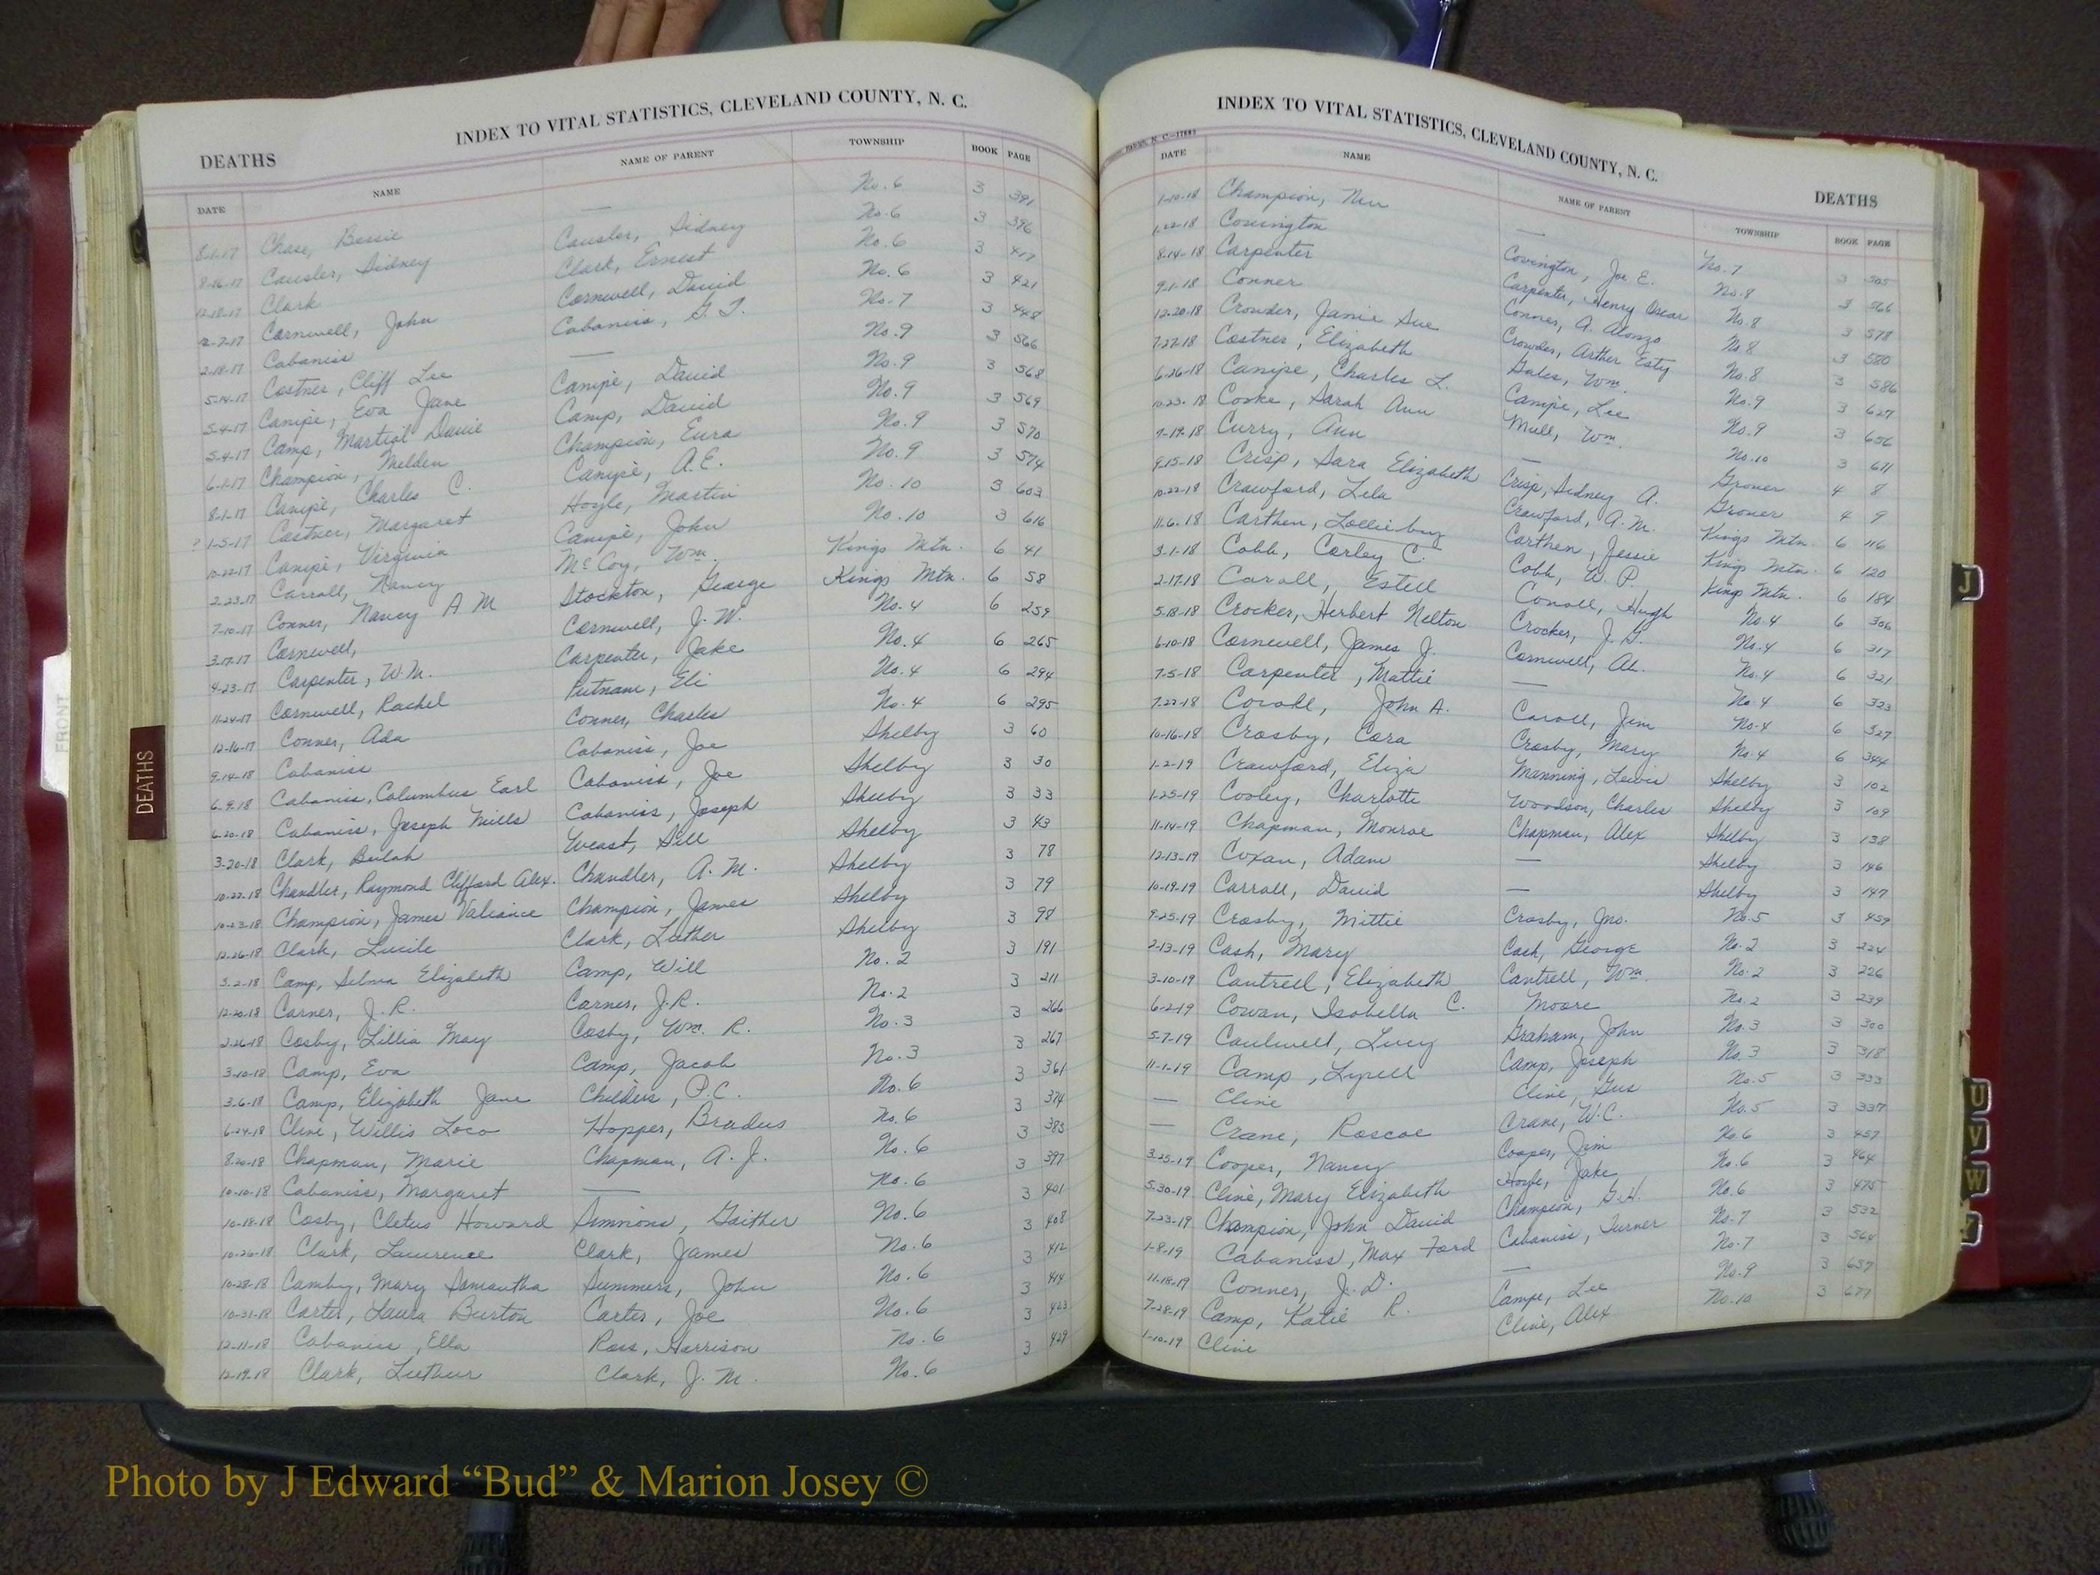 INDEX TO VITAL STATISTICS, CLEVELAND COUNTY, N. C.
DEATHS
DATE NAME NAME OF PARENT TOWNSHIP BOOK PAGE
8-1-17 Chase, Bessie — No. 6 3 391
8-16-17 Causler, Sidney Causler, Sidney No. 6 3 396
12-18-17 Clark Clark, Ernest No. 6 3 417
12-7-17 Cornwell, John Cornwell, David No. 6 3 421
2-18-17 Cabaniss Cabaniss, G. T. No. 7 3 448
5-14-17 Costner, Cliff Lee — No. 9 3 566
5-4-17 Canipe, Eva Jane Canipe, David No. 9 3 568
5-4-17 Camp, Martial Davie Camp, David No. 9 3 569
6-1-17 Champion, Melden Champion, Eura No. 9 3 570
8-1-17 Canipe, Charles C. Canipe, A. E. No. 9 3 574
? 1-5-17 Costner, Margaret Hoyle, Martin No. 10 3 603
10-22-17 Canipe, Virginia Canipe, John No. 10 3 616
2-23-17 Carroll, Nancy McCoy, Wm. Kings Mtn. 6 41
7-10-17 Conner, Nancy A M Stockton, George Kings Mtn. 6 58
3-17-17 Cornwell, Cornwell, J. W. No. 4 6 259
4-23-17 Carpenter, W. M. Carpenter, Jake No. 4 6 265
11-24-17 Cornwell, Rachel Putnam, Eli No. 4 6 294
12-16-17 Conner, Ada Conner, Charles No. 4 6 295
9-14-18 Cabaniss Cabaniss, Joe Shelby 3 60
6-9-18 Cabaniss, Columbus Earl Cabaniss, Joe Shelby 3 30
6-20-18 Cabaniss, Joseph Mills Cabaniss, Joseph Shelby 3 33
3-20-18 Clark, Bulah Weast, Sill Shelby 3 43
10-22-18 Chandler, Raymond Clifford Alex. Chandler, A. M. Shelby 3 78
10-23-18 Champion, James Valiance Champion, James Shelby 3 79
12-26-18 Clark, Lucile Clark, Luther Shelby 3 98
3-2-18 Camp, Selma Elizabeth Camp, Will No. 2 3 191
12-20-18 Carner, J. R. Carner, J. R. No. 2 3 211
2-26-18 Cosby, Lillia May Cosby, Wm. R. No. 3 3 266
3-10-18 Camp, Eva Camp, Jacob No. 3 3 267
3-6-18 Camp, Elizabeth Jane Childers, P. C. No. 6 3 361
6-24-18 Cline, Willis Loco Hopper, Bradus No. 6 3 374
8-20-18 Chapman, Marie Chapman, A. J. No. 6 3 383
10-10-18 Cabaniss, Margaret — No. 6 3 397
10-18-18 Cosby, Cletus Howard Simmons, Gaither No. 6 3 401
10-26-18 Clark, Lawrence Clark, James No. 6 3 408
10-28-18 Camby, Mary Samantha Summers, John No. 6 3 412
10-31-18 Carter, Laura Burton Carter, Joe No. 6 3 414
12-11-18 Cabaniss, Ella Ross, Harrison No. 6 3 423
12-19-18 Clark, Luther Clark, J. M. No. 6 3 429
INDEX TO VITAL STATISTICS, CLEVELAND COUNTY, N. C.
DEATHS
DATE NAME NAME OF PARENT TOWNSHIP BOOK PAGE
1-10-18 Champion, — No. 7 3 505
1-22-18 Covington Covington, Joe E. No. 8 3 566
8-14-18 Carpenter Carpenter, Henry Oscar No. 8 3 578
9-1-18 Conner Conner, A. Alonzo No. 8 3 580
12-20-18 Crowder, Janie Sue Crowder, Arther Esty No. 8 3 586
7-27-18 Costner, Elizabeth Gales, Wm. No. 9 3 627
6-26-18 Canipe, Charles L. Canipe, Lee No. 9 3 656
10-23-18 Cooke, Sarah Ann Mull, Wm. No. 10 3 611
7-19-18 Curry, Ann — Grover 4 8
9-15-18 Crisp, Sara Elizabeth Crisp, Sidney A. Grover 4 9
10-22-18 Crawford, Lela Crawford, A. M. Kings Mtn. 6 116
11-6-18 Carthen, Lollieburg Carthen, Jessie Kings Mtn. 6 120
3-1-18 Cobb, Corley C. Cobb, W. P. King Mtn. 6 184
2-17-18 Caroll, Estell Conoll, Hugh No. 4 6 306
5-18-18 Crocker, Herbert Nelton Crocker, J. G. No. 4 6 317
6-10-18 Cornwell, James J. Cornwell, Al. No. 4 6 321
7-5-18 Carpenter, Mattie — No. 4 6 323
7-22-18 Coroll, John A. Caroll, Jim No. 4 6 327
10-16-18 Crosby, Cora Crosby, Mary No. 4 6 344
1-2-19 Crawford, Eliza Manning, Lewis Shelby 3 102
1-25-19 Cooley, Charlotte Woodson, Charles Shelby 3 109
11-14-19 Chapman, Monroe Chapman, Alex Shelby 3 138
12-13-19 Coxan, Adam — Shelby 3 146
10-19-19 Carroll, David — Shelby 3 147
9-25-19 Crosby, Mittie Crosby, Jno. No. 5 3 459
2-13-19 Cash, Mary Cash, George No. 2 3 224
3-10-19 Cantrell, Elizabeth Cantrell, Wm. No. 2 3 226
6-2-19 Cowan, Isabella C. Moore No. 2 3 239
5-7-19 Caulwell, Lucy Graham, John No. 3 3 300
11-1-19 Camp, Lyrell Camp, Joseph No. 3 3 318
— Cline Cline, Gus No. 5 3 333
— Crane, Roscoe Crane, W. C. No. 5 3 337
3-25-19 Cooper, Nancy Cooper, Jim No. 6 3 457
5-30-19 Cline, Mary Elizabeth Hoyle, Jake No. 6 3 464
7-23-19 Champion, John David Champion, G. H. No. 6 3 475
1-8-19 Cabaniss, Max Ford Cabaniss, Turner No. 7 3 532
11-18-19 Conner, J. D. — No. 7 3 564
7-28-19 Camp, Katie R. Campe, Lee No. 9 3 637
1-10-19 Cline Cline, Alex No. 10 3 677
FRONT
DEATHS
J
U
V
W
Photo by J Edward “Bud” & Marion Josey ©